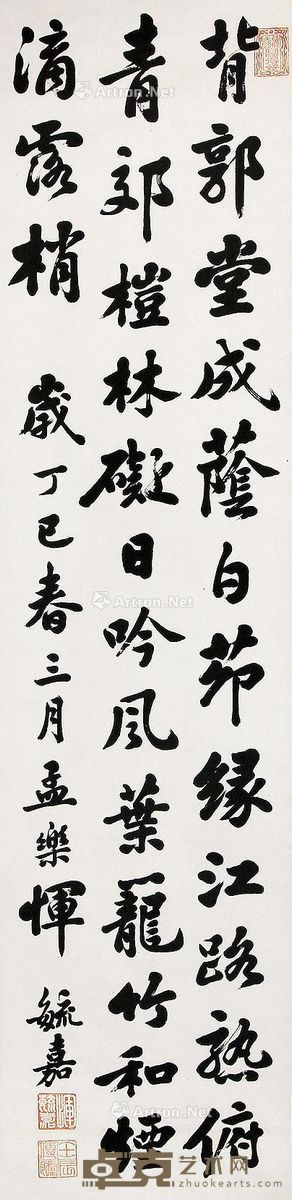 背郭堂成蔭白茆緣江路熟俯
青郊榿林礙日吟風葉籠竹和煙
滴露梢
歲丁巳春三月孟樂惲
毓嘉
Artron.Net
Artron.Net
Artron.Net
Artron.Net
卓克艺术网
www.zhuokearts.com